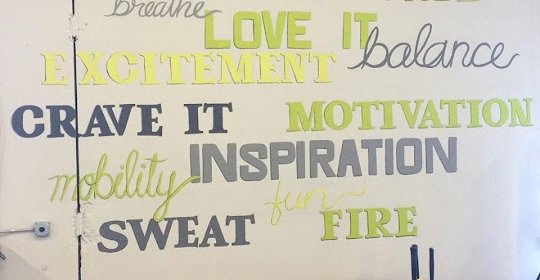 breathe
LOVE IT
EXCITEMENT balance
CRAVE IT MOTIVATION
mobility INSPIRATION
SWEAT fun FIRE